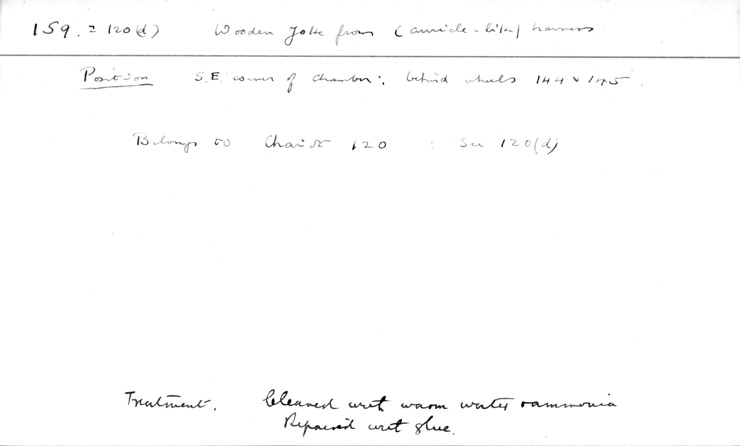 159. = 120(d) Wooden Yoke from (curricle-like) harness
Position S.E. corner of chamber: behind wheels 144 & 145.
Belongs to Chariot 120 : See 120(d)
Treatment. Cleaned with warm water & ammonia
Repaired with glue.